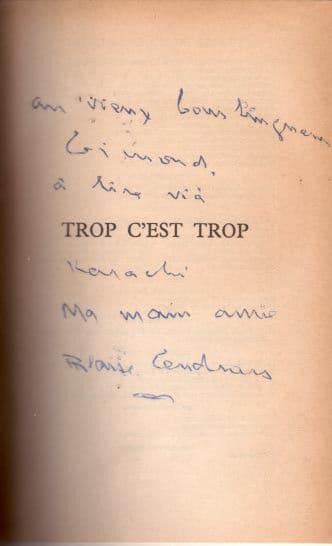 au vieux bourlingueur
Gimond,
à lire via
TROP C'EST TROP
Karachi
Ma main amie
Blaise Cendrars